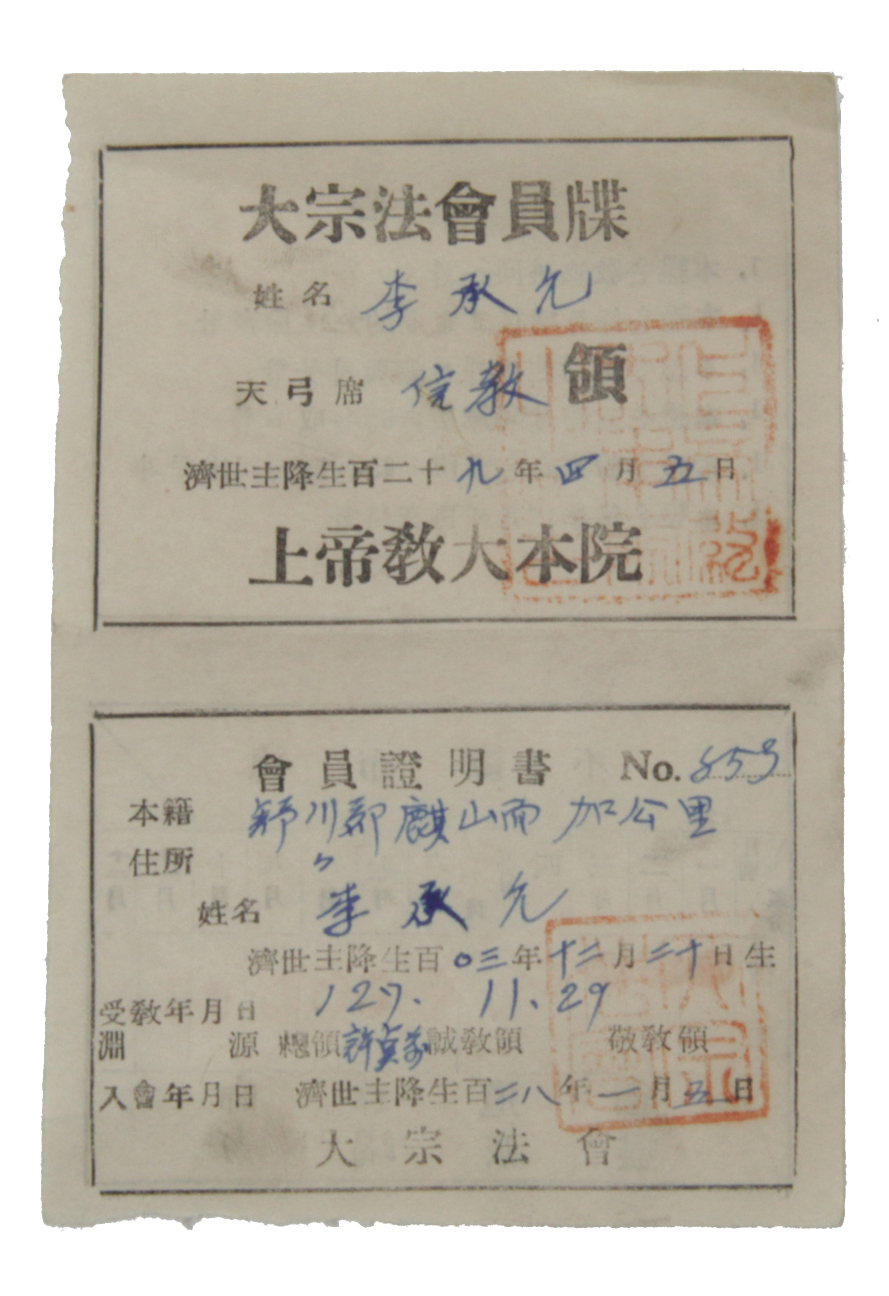 大宗法會員牒
姓名 李承允
天弓席 信教 領
濟世主降生百二十九年四月五日
上帝教大本院
會員證明書 No. 853
本籍 舒川郡麒山面 加公里
住所 〃
姓名 李承允
濟世主降生百〇三年十二月二十日生
受教年月日 127. 11. 29
淵源 總領 許貞 誠教領 敬教領
入會年月日 濟世主降生百二八年一月五日
大宗法會